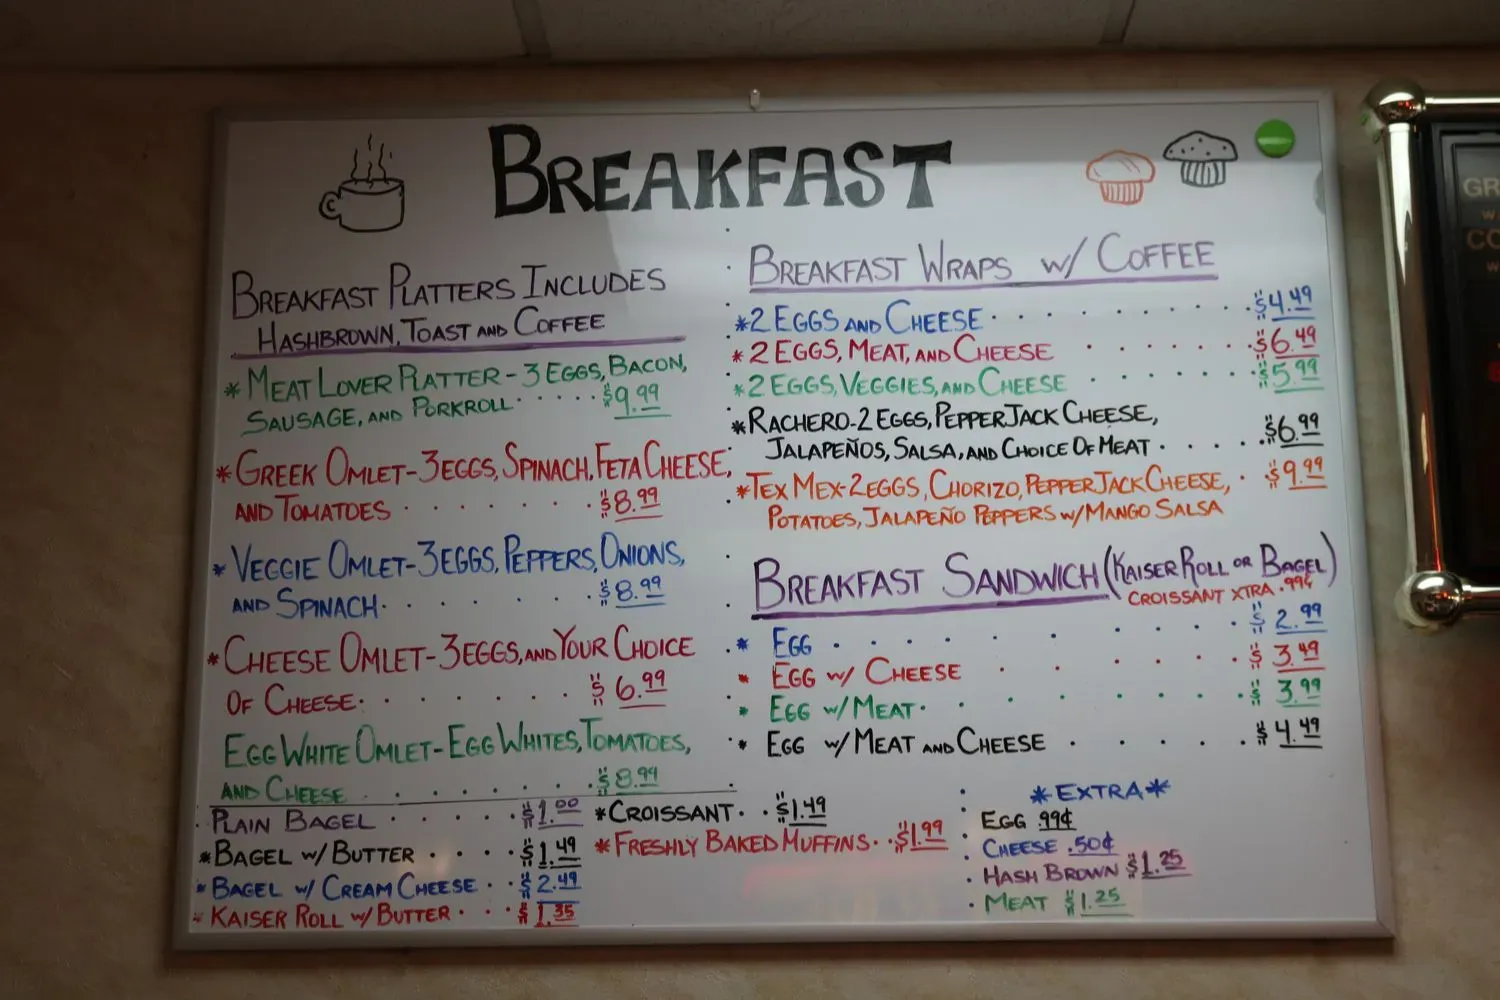 BREAKFAST
BREAKFAST PLATTERS INCLUDES
HASHBROWN, TOAST AND COFFEE
*MEAT LOVER PLATTER - 3 EGGS, BACON,
SAUSAGE, AND PORKROLL ..... $9.99
*GREEK OMLET - 3EGGS, SPINACH, FETA CHEESE,
AND TOMATOES ...... $8.99
*VEGGIE OMLET - 3EGGS, PEPPERS, ONIONS,
AND SPINACH ...... $8.99
*CHEESE OMLET - 3EGGS, AND YOUR CHOICE
OF CHEESE ...... $6.99
EGG WHITE OMLET - EGG WHITES, TOMATOES,
AND CHEESE ...... $8.99
PLAIN BAGEL ..... $1.00
*BAGEL W/ BUTTER .... $1.49
*BAGEL W/ CREAM CHEESE .. $2.49
*KAISER ROLL W/ BUTTER ... $1.35
*CROISSANT .. $1.49
*FRESHLY BAKED MUFFINS .. $1.99
BREAKFAST WRAPS W/ COFFEE
*2 EGGS AND CHEESE ........ $4.49
*2 EGGS, MEAT, AND CHEESE ...... $6.49
*2 EGGS, VEGGIES, AND CHEESE ...... $5.99
*RACHERO - 2 EGGS, PEPPER JACK CHEESE,
JALAPEÑOS, SALSA, AND CHOICE OF MEAT ..... $6.99
*TEX MEX - 2EGGS, CHORIZO, PEPPER JACK CHEESE, .. $9.99
POTATOES, JALAPEÑO PEPPERS W/ MANGO SALSA
BREAKFAST SANDWICH (KAISER ROLL OR BAGEL)
CROISSANT XTRA .99¢
* EGG ......... $2.99
* EGG W/ CHEESE ...... $3.49
* EGG W/ MEAT ........ $3.99
* EGG W/ MEAT AND CHEESE ..... $4.49
*EXTRA*
EGG .99¢
CHEESE .50¢
HASH BROWN $1.25
MEAT $1.25
GR
CO